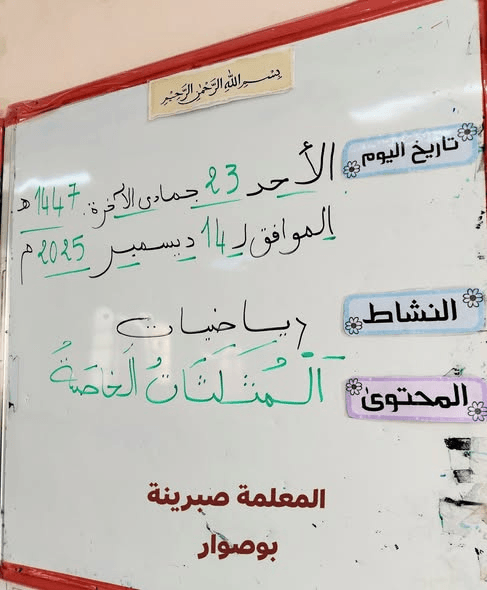 بسم الله الرحمن الرحيم
تاريخ اليوم
الأحد 23 جمادى الآخرة 1447 هـ
الموافق لـ 14 ديسمبر 2025 م
النشاط
رياضيات
المحتوى
المُثَلَّثَاتُ الخَاصَّةُ
المعلمة صبرينة
بوصوار